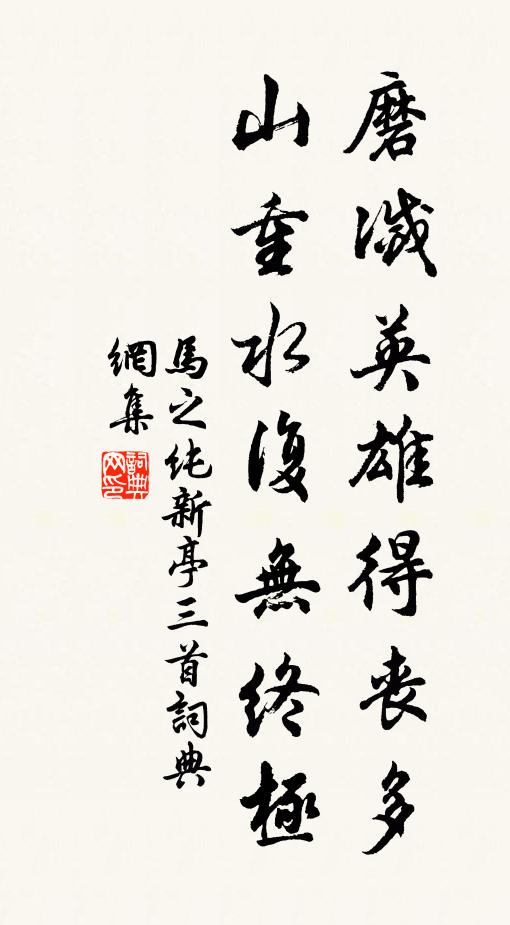 磨滅英雄得喪多
山重水復無終極
馬之純新亭三首詞典
網集
詞典
网印